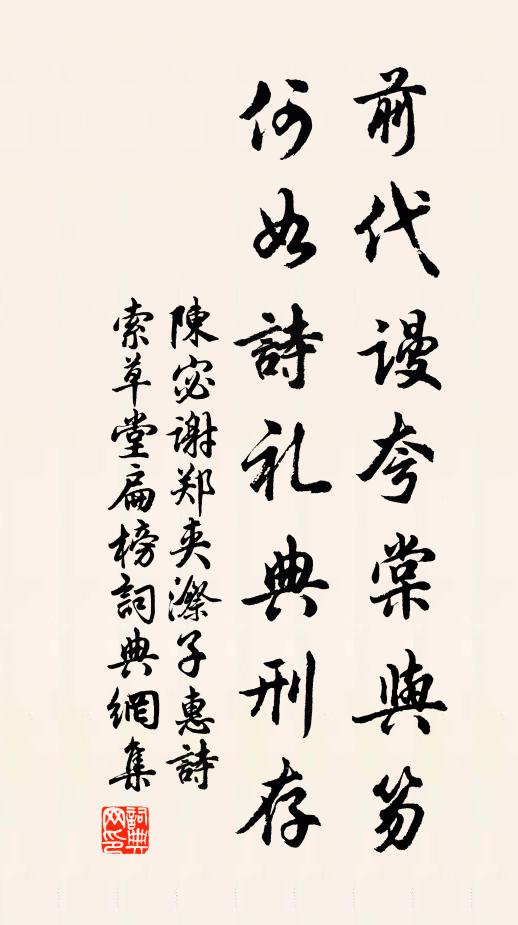 前代谩夸棠與笏
何如詩礼典刑存
陳宓谢郑夾漈子惠詩
索草堂扁榜詞典網集
詞典網印